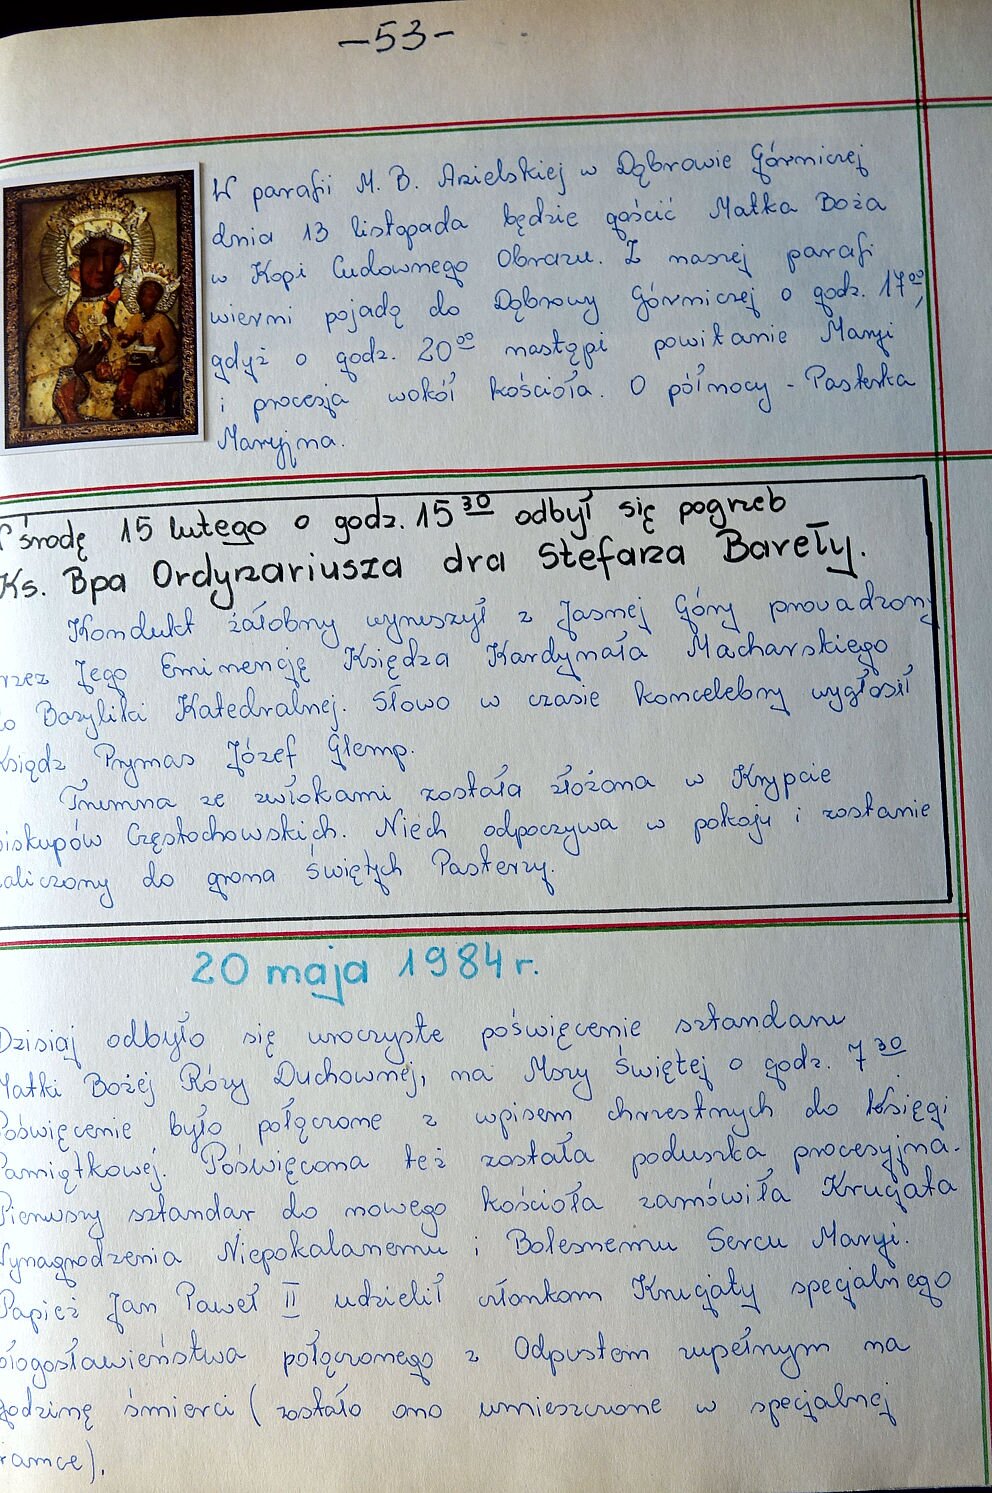 -53-
W parafii M. B. Anielskiej w Dąbrowie Górniczej
dnia 13 listopada będzie gościć Matka Boża
w Kopi Cudownego Obrazu. Z naszej parafi
wierni pojadą do Dąbrowy Górniczej o godz. 17⁰⁰,
gdyż o godz. 20⁰⁰ nastąpi powitanie Maryi
i procesja wokół kościoła. O północy - Pasterka
Maryjna.
środę 15 lutego o godz. 15³⁰ odbył się pogrzeb
Ks. Bpa Ordynariusza dra Stefana Bareły.
Kondukt żałobny wyruszył z Jasnej Góry prowadzony
rzez Jego Eminencję Księdza Kardynała Macharskiego
o Bazyliki Katedralnej. Słowo w czasie koncelebry wygłosił
ksiądz Prymas Józef Glemp.
Trumna ze zwłokami została złożona w Krypcie
iskupów Częstochowskich. Niech odpoczywa w pokoju i zostanie
aliczony do grona świętych Pasterzy.
20 maja 1984 r.
Dzisiaj odbyło się uroczyste poświęcenie sztandaru
Matki Bożej Róży Duchownej, na Mszy świętej o godz. 7³⁰
Poświęcenie było połączone z wpisem chrzestnych do księgi
Pamiątkowej. Poświęcona też została poduszka procesyjna.
Pierwszy sztandar do nowego kościoła zamówiła Krucjata
Wynagrodzenia Niepokalanemu i Bolesnemu Sercu Maryi.
Papież Jan Paweł II udzielił członkom Krucjaty specjalnego
błogosławieństwa połączonego z Odpustem zupełnym na
godzinę śmierci (zostało ono umieszczone w specjalnej
ramce).